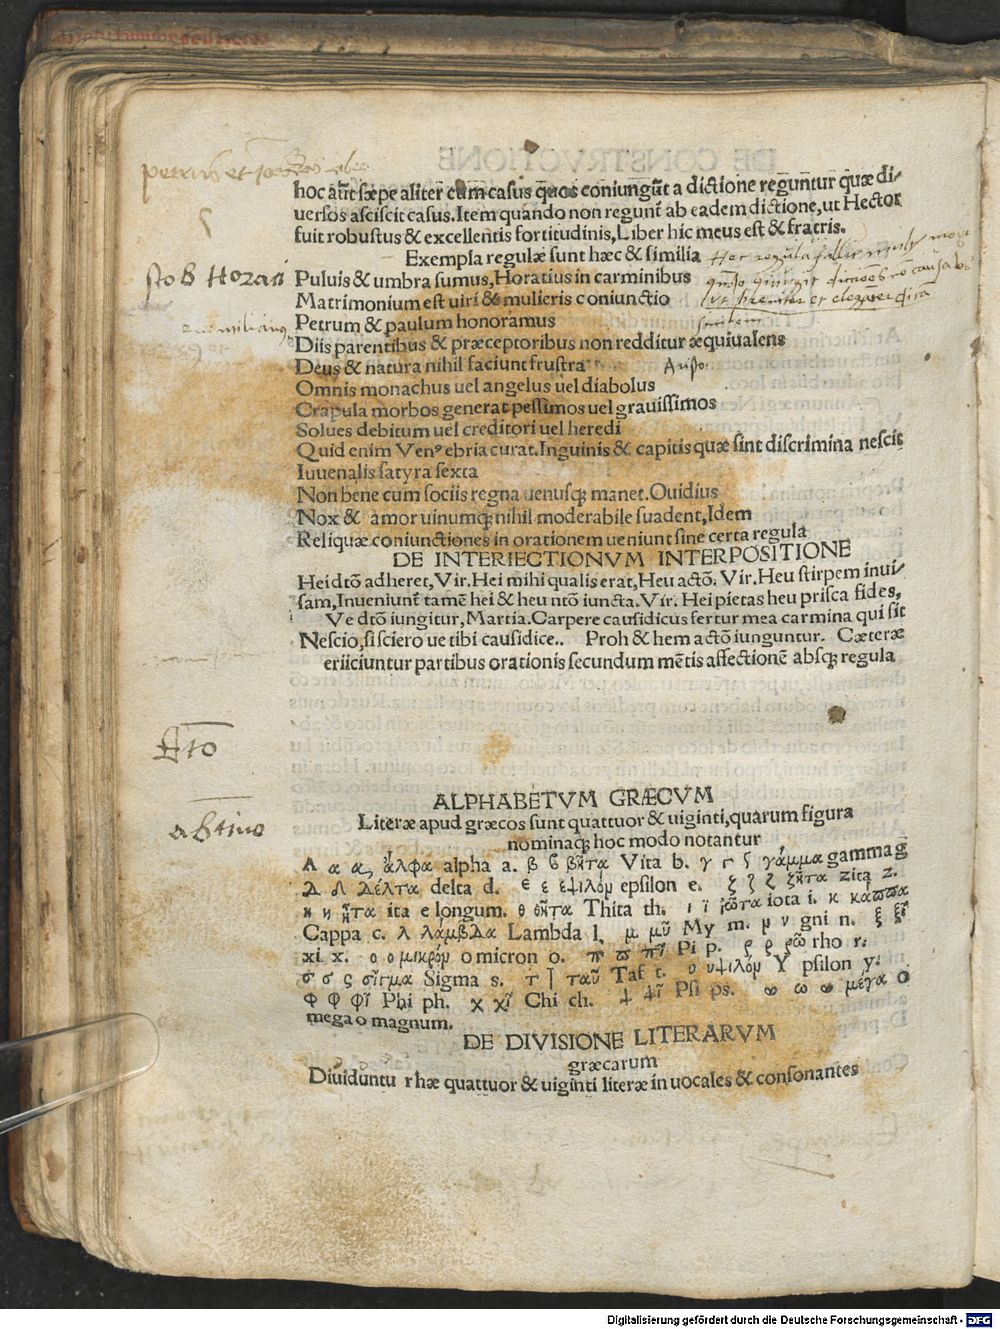 petrus et
hoc aūt sæpe aliter cum casus quos coniungūt a dictione reguntur quæ di/
uersos asciscit casus. Item quando non regunt̄ ab eadem dictione, ut Hector
fuit robustus & excellentis fortitudinis, Liber hic meus est & fratris.
Exempla regulæ sunt hæc & similia
Hec regula fallit
Puluis & umbra sumus, Horatius in carminibus
Matrimonium est uiri & mulieris coniunctio
Petrum & paulum honoramus
Diis parentibus & præceptoribus non redditur æquiualens
Deus & natura nihil faciunt frustra
Omnis monachus uel angelus uel diabolus
Crapula morbos generat pessimos uel grauissimos
Solues debitum uel creditori uel heredi
Quid enim Venꝰ ebria curat. Inguinis & capitis quæ sint discrimina nescit
Iuuenalis satyra sexta
Non bene cum sociis regna uenusq; manet. Ouidius
Nox & amor uinumq; nihil moderabile suadent, Idem
Reliquæ coniunctiones in orationem ueniunt sine certa regula
DE INTERIECTIONVM INTERPOSITIONE
Hei dtō adheret, Vir. Hei mihi qualis erat, Heu actō. Vir. Heu stirpem inui/
sam, Inueniunt̄ tamē hei & heu ntō iuncta. Vir. Hei pietas heu prisca fides,
Ve dtō iungitur, Martia. Carpere causidicus fertur mea carmina qui sit
Nescio, si sciero ue tibi causidice.. Proh & hem actō iunguntur. Cæteræ
eriiciuntur partibus orationis secundum mētis affectionē absq; regula
abtiuo
ALPHABETVM GRÆCVM
Literæ apud græcos sunt quattuor & uiginti, quarum figura
nominaq; hoc modo notantur
Α α α, ἄλφα alpha a. β ϐ βῆτα Vita b. γ Γ ϛ γάμμα gamma g
Δ δ Δέλτα delta d. ϵ ε ἐψιλόν epsilon e. ζ ζ ζ ζῆτα zita z.
н η ἦτα ita e longum. θ θῆτα Thita th. ι ϊ ἰῶτα iota i. κ κάππα
Cappa c. λ λάμβδα Lambda l. μ μῦ My m. μ ν gni n. ξ ξῖ
xi x. ο ο μικρόν o micron o. π ϖ πῖ Pi p. ρ ρ ρῶ rho r.
σ σ ς σῖγμα Sigma s. τ ꞁ ταῦ Taf t. υ υψιλόν Y psilon y.
Φ φ φῖ Phi ph. χ χῖ Chi ch. ψ ψῖ Psi ps. ω ω ω μέγα o
mega o magnum.
DE DIVISIONE LITERARVM
græcarum
Diuiduntu rhæ quattuor & uiginti literæ in uocales & consonantes
Digitalisierung gefördert durch die Deutsche Forschungsgemeinschaft - DFG